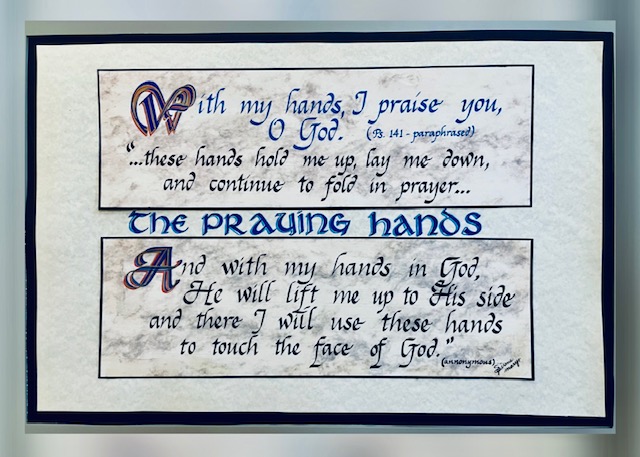 With my hands, I praise you,
O God. (Ps. 141 - paraphrased)
"...these hands hold me up, lay me down,
and continue to fold in prayer...
the praying hands
And with my hands in God,
He will lift me up to His side
and there I will use these hands
to touch the face of God."
(annonymous)